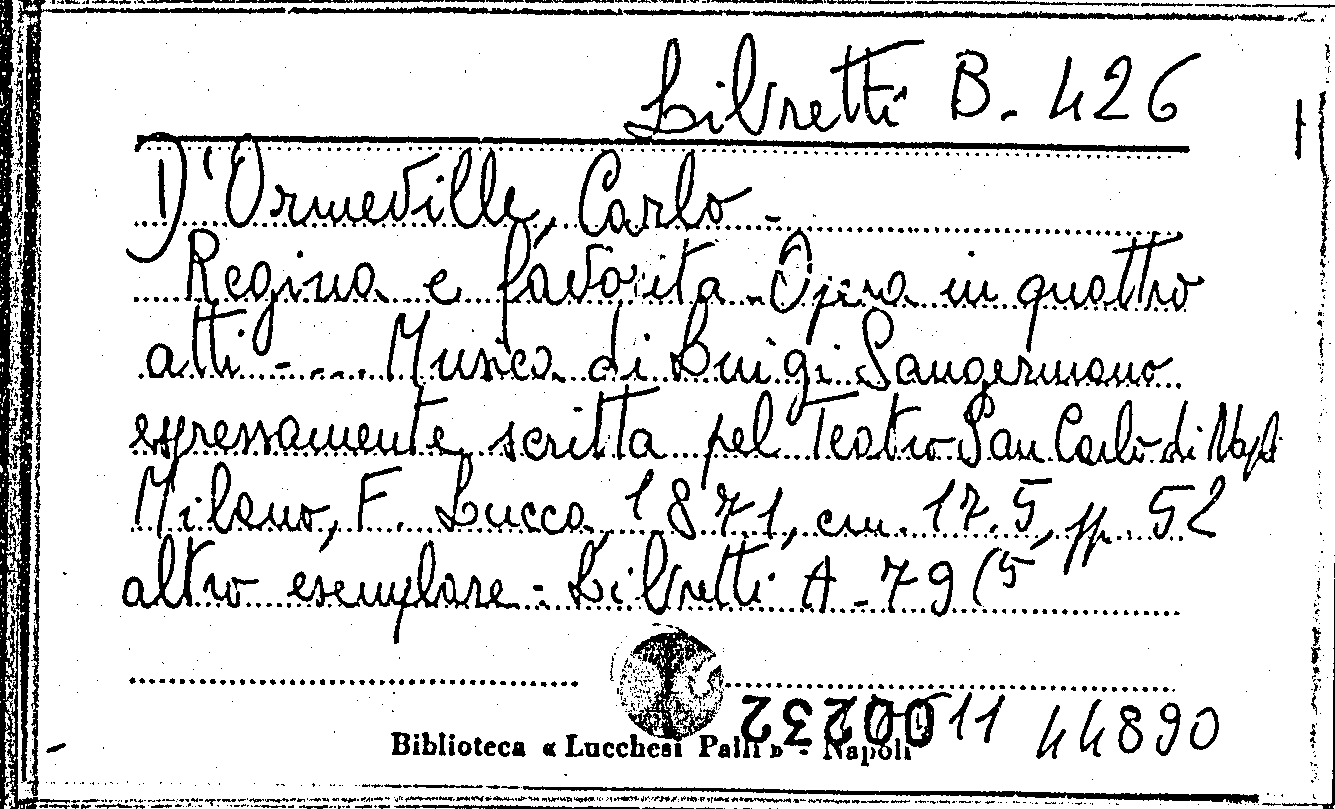 Libretti B. 426
D'Ormeville, Carlo -
Regina e favorita. Opera in quattro
atti - .... Musica di Luigi Sangermano
espressamente scritta pel Teatro San Carlo di Napoli
Milano, F. Lucca, 1871, cm. 17.5, pp. 52
altro esemplare - Libretti A - 79 (5
002232
11 44890
Biblioteca « Lucchesi Palli » - Napoli